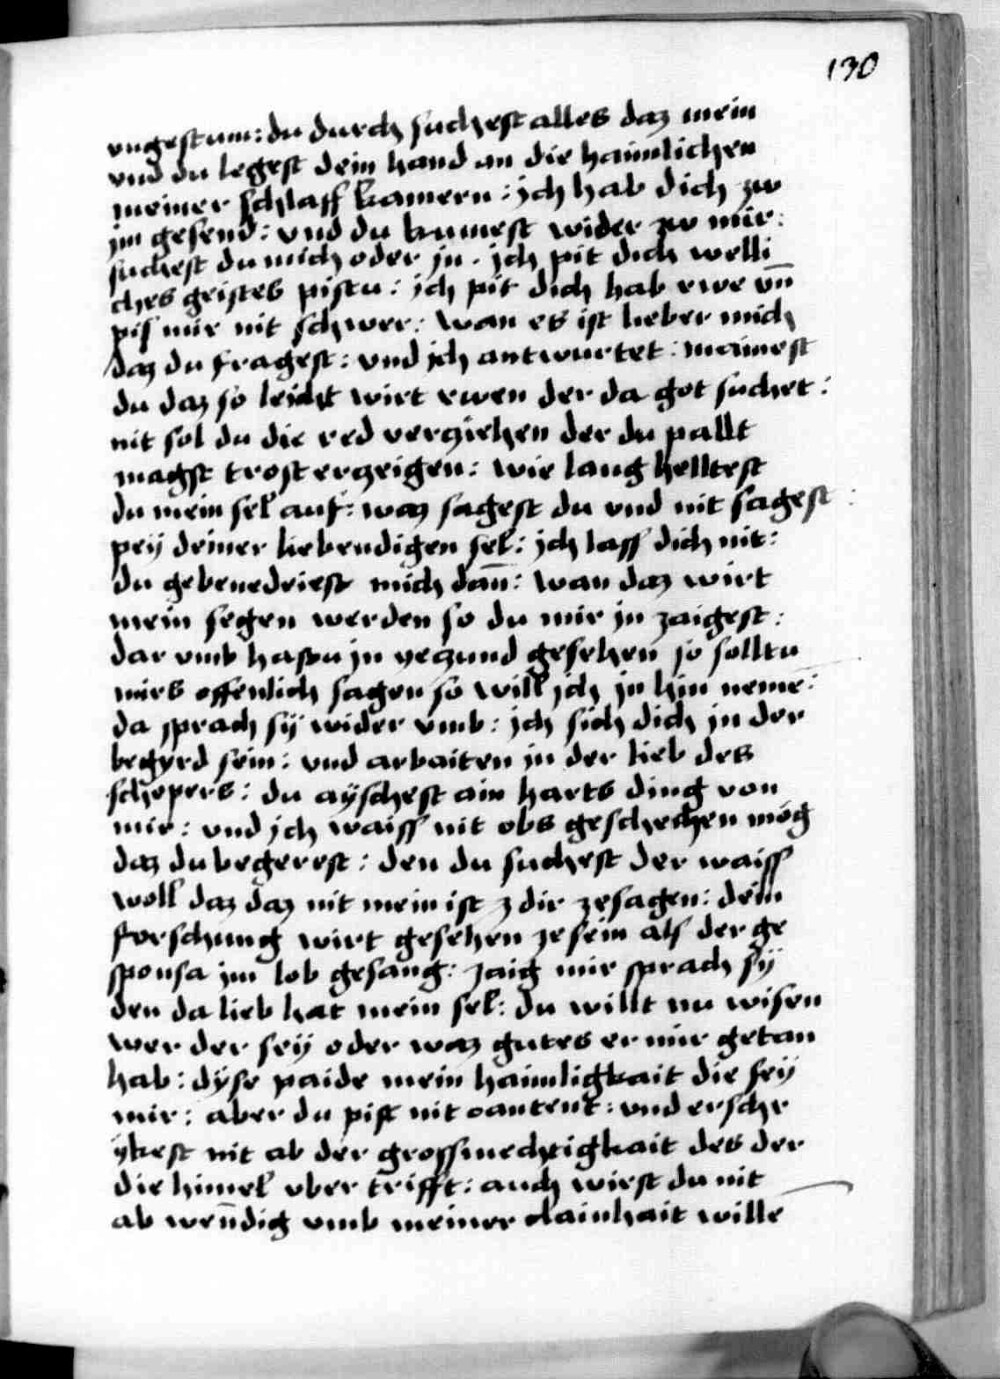 130
vngestum: du durch suchest alles daz mein
vnd du legest dein hand an die haimlichen
meiner schlaff kamern: jch hab dich zw
jm gesend: vnd du kumest wider zw mir:
suchest du mich oder jn. jch pit dich welli
ches geistes pistu: jch pit dich hab rwe vn̄
pis mir nit schwer: wan es ist lieber mich
daz du fragest: vnd jch antwurtet: mainest
du daz so leicht wirt rwen der da got suchet:
nit sol du die red verziehen der du pallt
magst trost erzeigen: wie lang helltest
du mein sel auf: waz sagest du vnd nit sagest:
pey deiner liebendigen sel: jch lass dich nit:
du gebenedeiest mich dan̄: wan daz wirt
mein segen werden so du mir jn zaigest:
dar vmb hastu jn yezund gesehen so solltu
mirs offenlich sagen so will jch jn hin neme:
da sprach sy wider vmb: jch sich dich jn der
begyrd sein: vnd arbaiten jn der lieb des
schepers: du aÿschest ain harts ding von
mir: vnd jch waiss nit obs geschechen mög
daz du begerest: den du suchest der waiss
woll daz daz nit mein ist z dir zesagen: dein
forschung wirt gesehen ze sein als der ge
sponsa jm lob gesang: zaig mir sprach sÿ
den da lieb hat mein sel: du willt nu wisen
wer der seÿ oder waz gutes er mir getan
hab: dÿse paide mein haimligkait die seÿ
mir: aber du pist nit cantent: vnd erschr
ikest nit ab der grossmechtigkait des der
die himel vber trifft: auch wirst du nit
ab wen̄dig vmb meiner clainhait wille